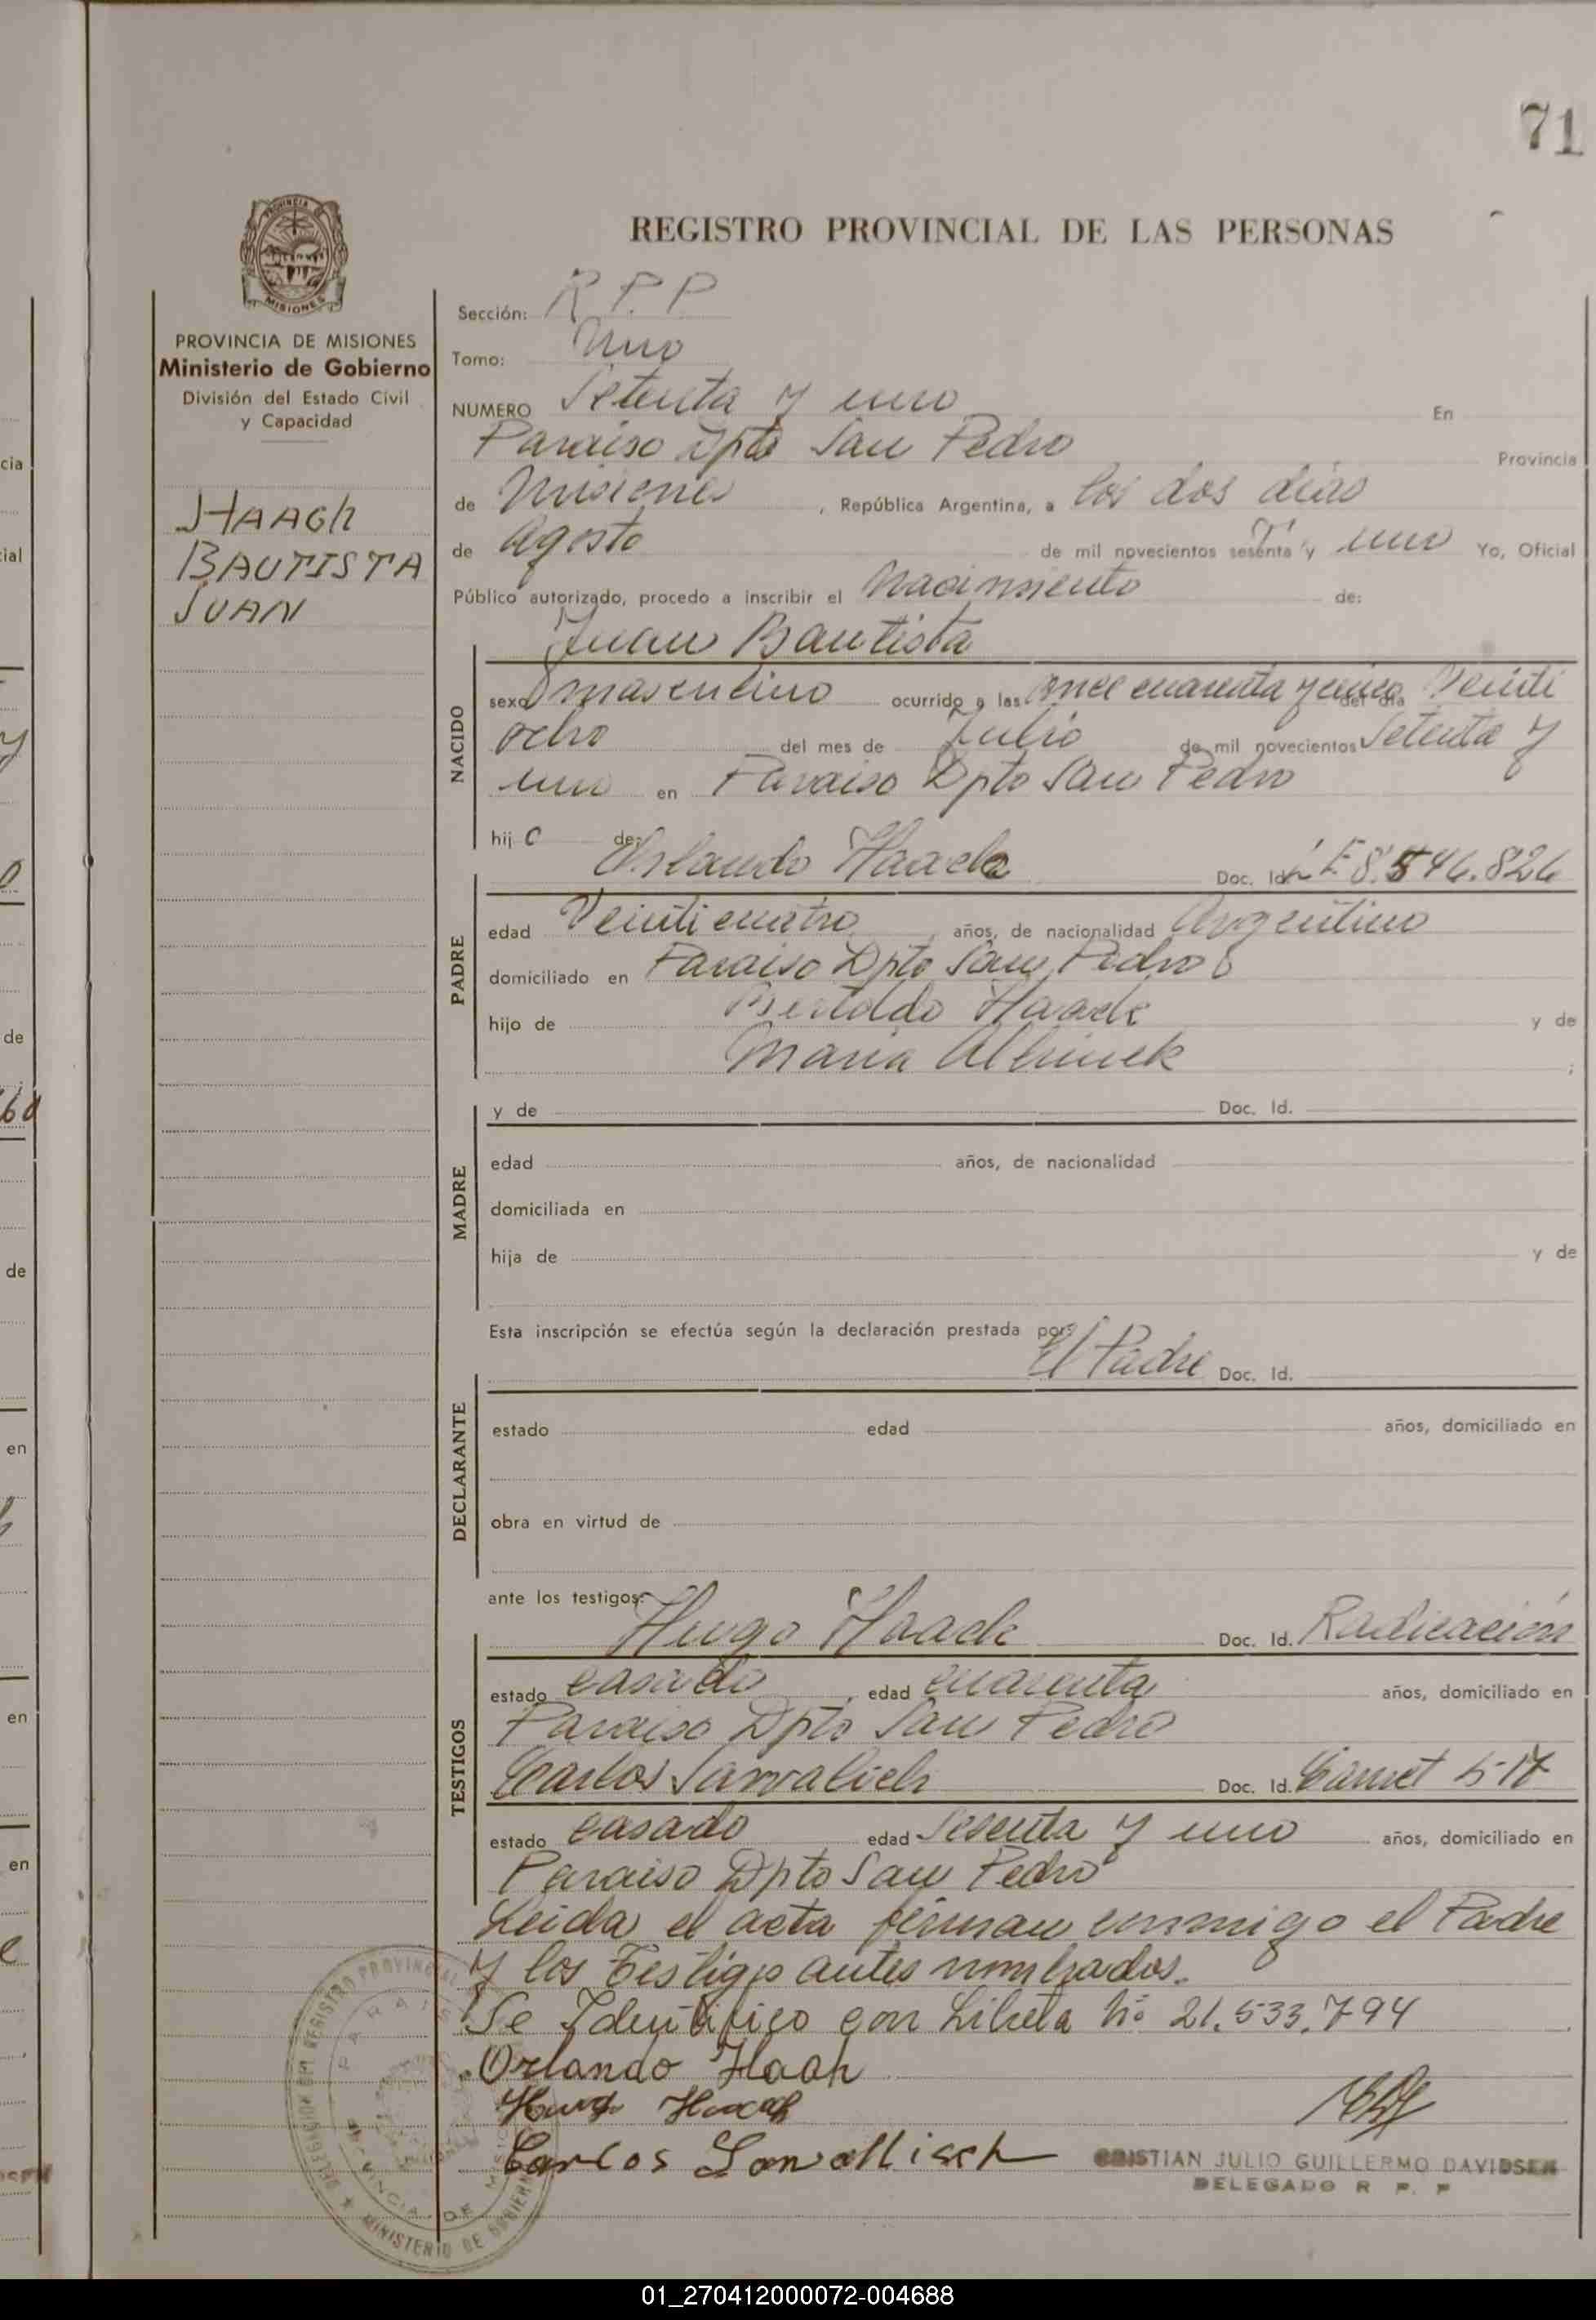 71
REGISTRO PROVINCIAL DE LAS PERSONAS
PROVINCIA DE MISIONES
Ministerio de Gobierno
División del Estado Civil
y Capacidad
HAAGH
BAUTISTA
JUAN
Sección: R.P.P
Tomo: Uno
NUMERO Setenta y uno En
Paraiso Dpto San Pedro Provincia
de Misiones, República Argentina, a los dos dias
de Agosto de mil novecientos sesenta y uno Yo, Oficial
Público autorizado, procedo a inscribir el Nacimiento de:
Juan Bautista
NACIDO
sexo masculino ocurrido a las once cuarenta y cinco del día Veinti
ocho del mes de Julio de mil novecientos Setenta y
uno en Paraiso Dpto San Pedro
hijo de: Orlando Haack Doc. Id. L E 8.546.826
PADRE
edad Veinticuatro años, de nacionalidad Argentino
domiciliado en Paraiso Dpto San Pedro
hijo de Haack y de
Maria
MADRE
y de Doc. Id.
edad años, de nacionalidad
domiciliada en
hija de y de
Esta inscripción se efectúa según la declaración prestada por:
El Padre Doc. Id.
DECLARANTE
estado edad años, domiciliado en
obra en virtud de
ante los testigos:
TESTIGOS
Hugo Haack Doc. Id. Radicación
estado casado edad cuarenta años, domiciliado en
Paraiso Dpto San Pedro
Carlos Doc. Id. Carnet 517
estado casado edad Sesenta y uno años, domiciliado en
Paraiso Dpto San Pedro
Leida el acta firman conmigo el Padre
y los Testigos antes nombrados.
Se Identifico con Libreta Nº 21.533.794
Orlando Haah
Carlos
CRISTIAN JULIO GUILLERMO DAVIDSEN
DELEGADO R. P. P
01_270412000072-004688